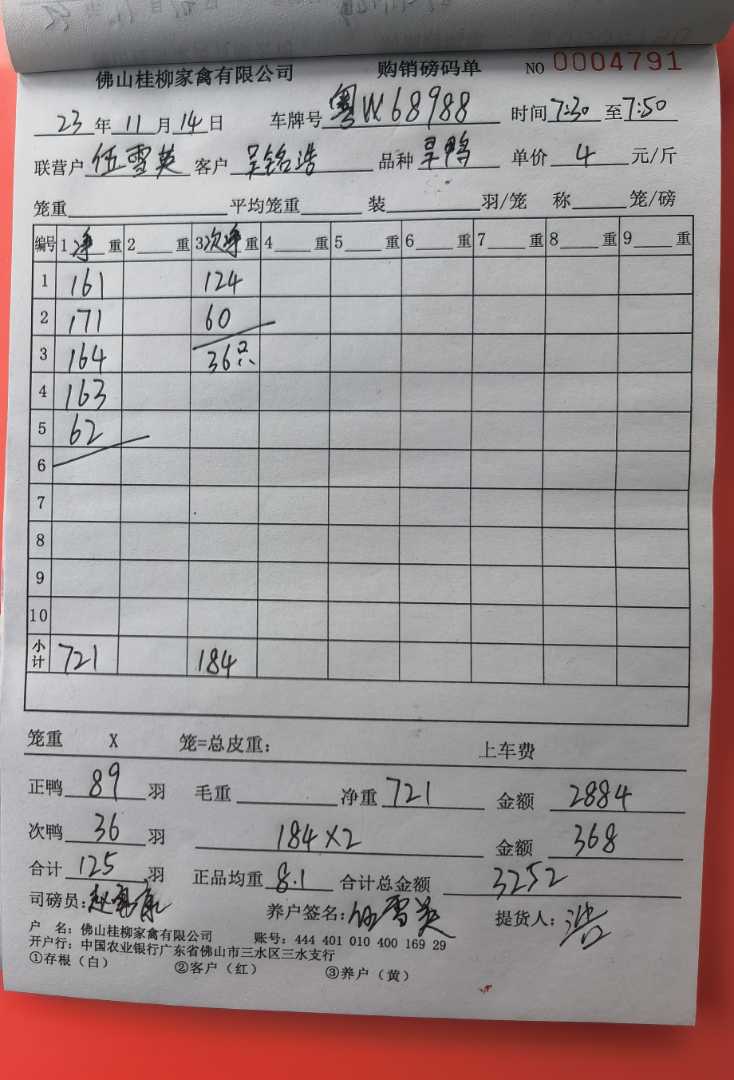 佛山桂柳家禽有限公司 购销磅码单 NO 0004791
23年11月14日 车牌号粤W68988 时间7:30至7:50
联营户伍雪英 客户吴铭浩 品种旱鸭 单价4元/斤
笼重 平均笼重 装 羽/笼 称 笼/磅
编号 1净重 2 重 3次净重 4 重 5 重 6 重 7 重 8 重 9 重
1 161 124
2 171 60
3 164 36只
4 163
5 62
6
7
8
9
10
小计 721 184
笼重 X 笼=总皮重: 上车费
正鸭89羽 毛重 净重721 金额2884
次鸭36羽 184×2 金额368
合计125羽 正品均重8.1 合计总金额3252
司磅员: 养户签名:伍雪英 提货人:浩
户 名: 佛山桂柳家禽有限公司 账号: 444 401 010 400 169 29
开户行: 中国农业银行广东省佛山市三水区三水支行
①存根(白) ②客户(红) ③养户(黄)